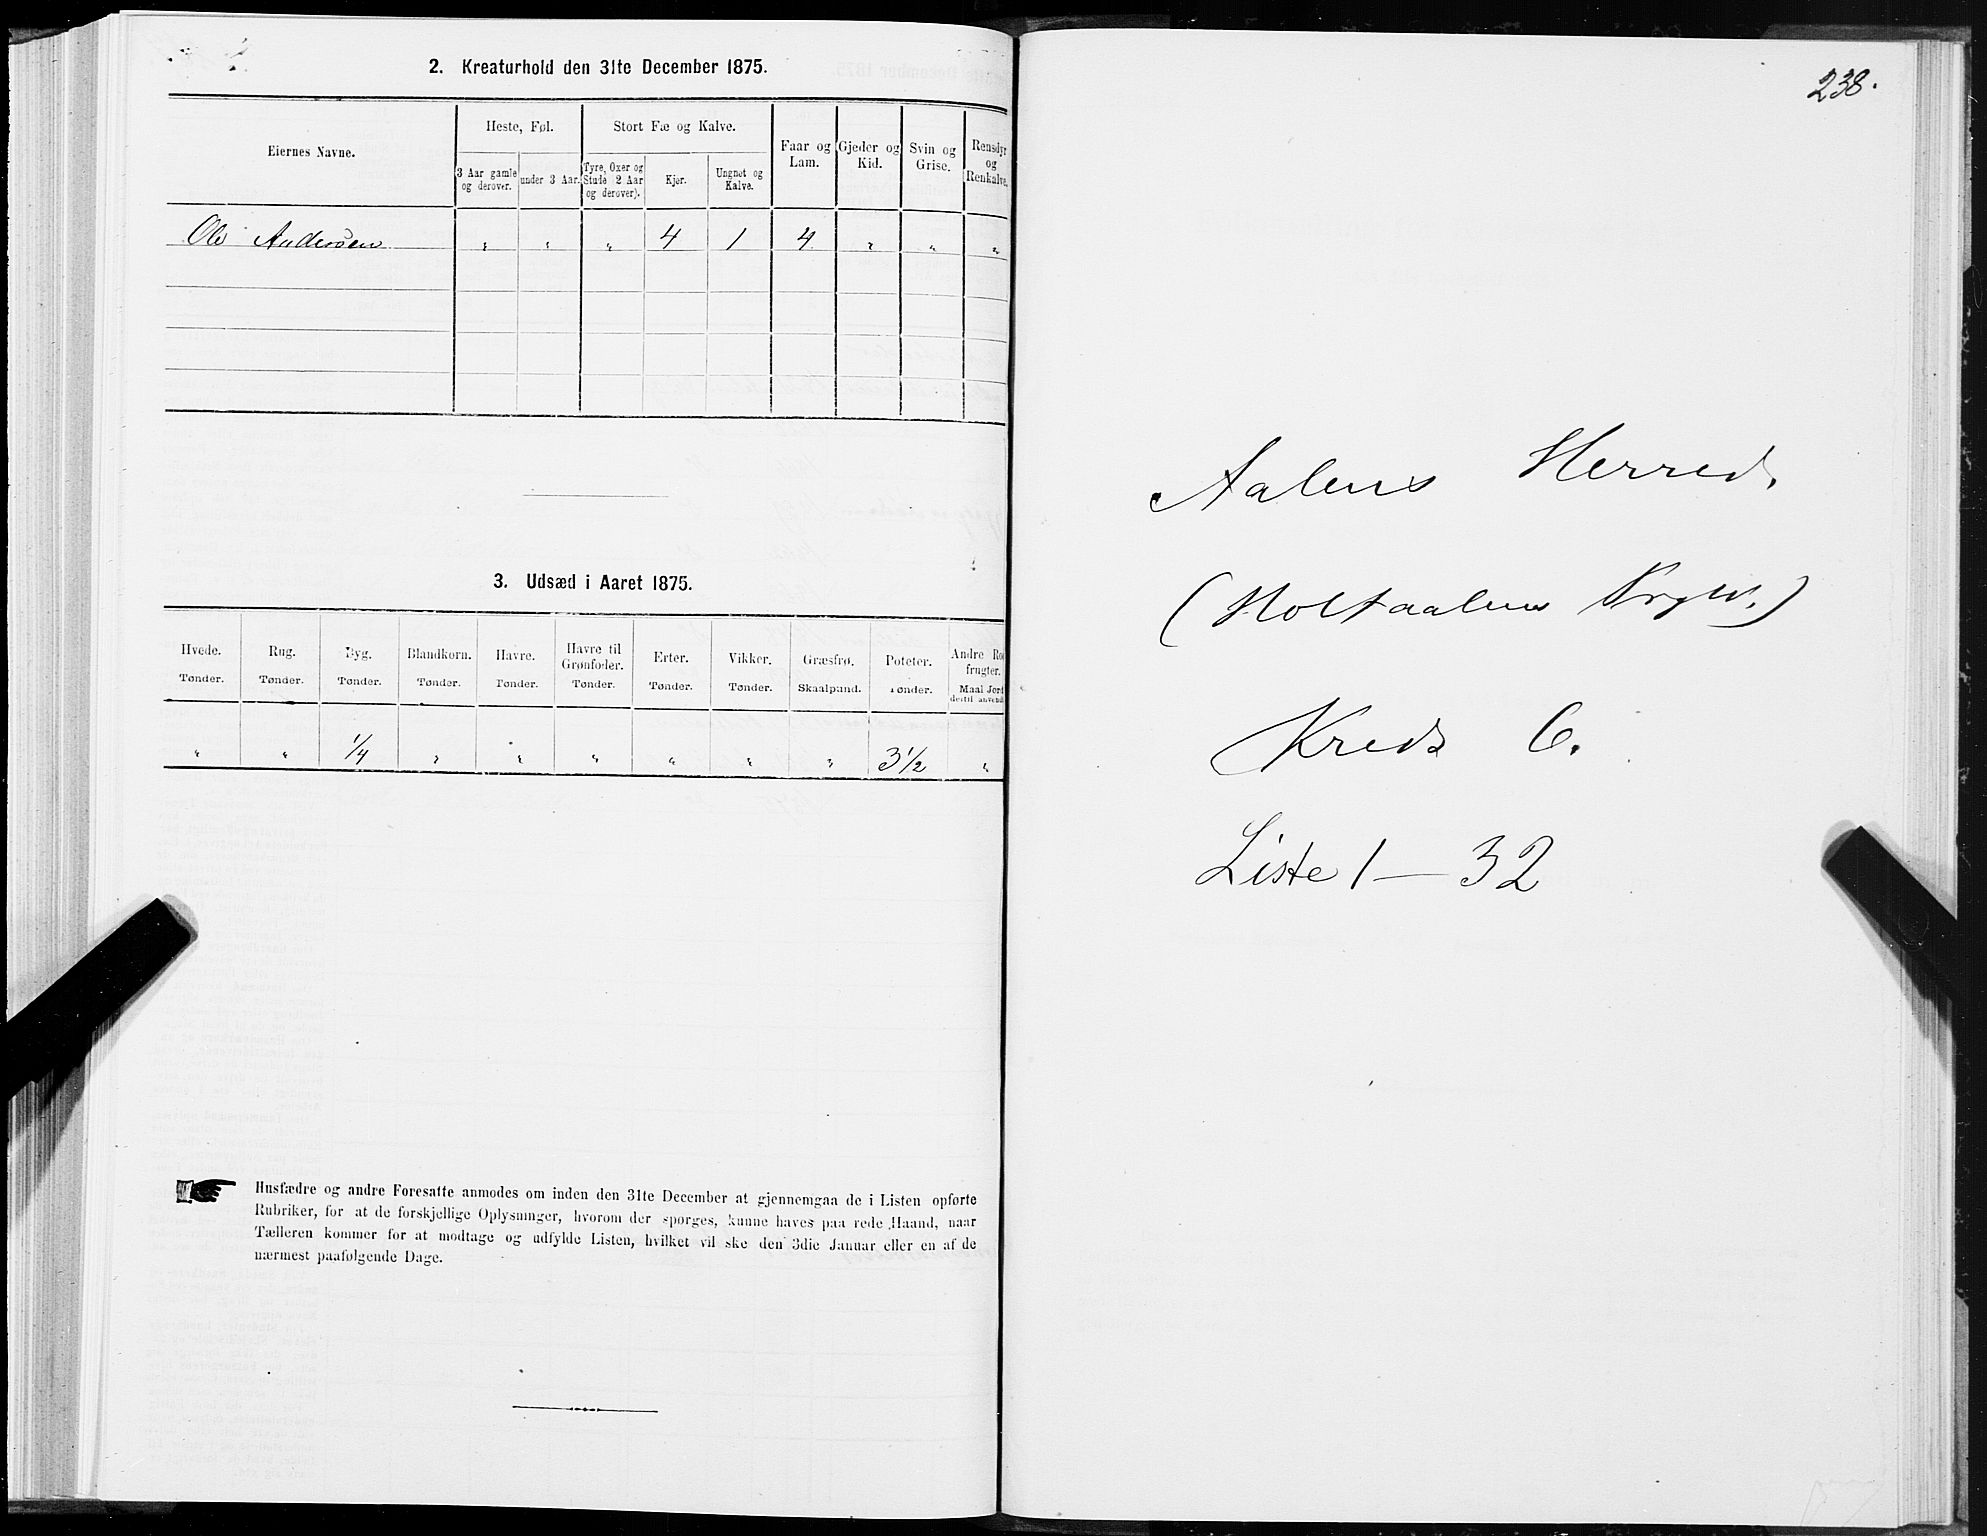 2. Kreaturhold den 31te December 1875.
Eiernes Navne.
Heste, Føl.
Stort Fæ og Kalve.
Faar og Lam.
Gjeder og Kid.
Svin og Grise.
Rensdyr og Renkalve.
3 Aar gamle og derover.
under 3 Aar.
Tyre, Oxer og Stude (2 Aar og derover).
Kjør.
Ungnøt og Kalve.
Ole Andersen " " " 4 1 4 " " "
3. Udsæd i Aaret 1875.
Hvede. Rug. Byg. Blandkorn. Havre. Havre til Grønfoder. Erter. Vikker. Græsfrø. Poteter. Andre Ro frugter.
Tønder. Tønder. Tønder. Tønder. Tønder. Tønder. Tønder. Tønder. Skaalpund. Tønder. Maal Jord dertil anvend
" " 1/4 " " " " " " 3 1/2 "
Husfædre og andre Foresatte anmodes om inden den 31te December at gjennemgaa de i Listen opførte
Rubriker, for at de forskjellige Oplysninger, hvorom der spørges, kunne haves paa rede Haand, naar
Tælleren kommer for at modtage og udfylde Listen, hvilket vil ske den 3die Januar eller en af de
nærmest paafølgende Dage.
238.
Aalens Herred.
(Holtaalens Prgld.)
Kreds 6.
Liste 1 — 32